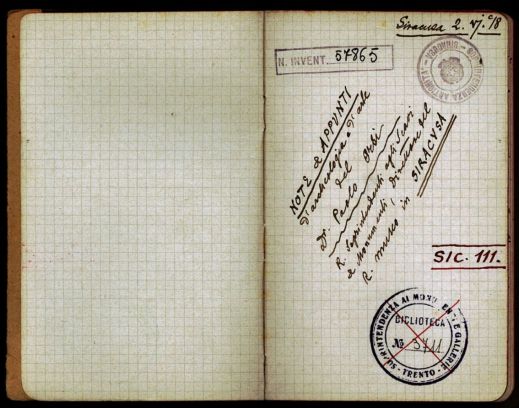 Siracusa 2. VI.º 18
N. INVENT. 57865
NOTE e APPUNTI
d'archeologia e d'arte
del
Dr. Paolo Orsi
R. Soprintendente agli Scavi
e Monumenti, Direttore del
R. museo in SIRACVSA
SIC. 111.
SOPRINTENDENZA AI MONUMENTI E GALLERIE
BIBLIOTECA
No 3711
- TRENTO -